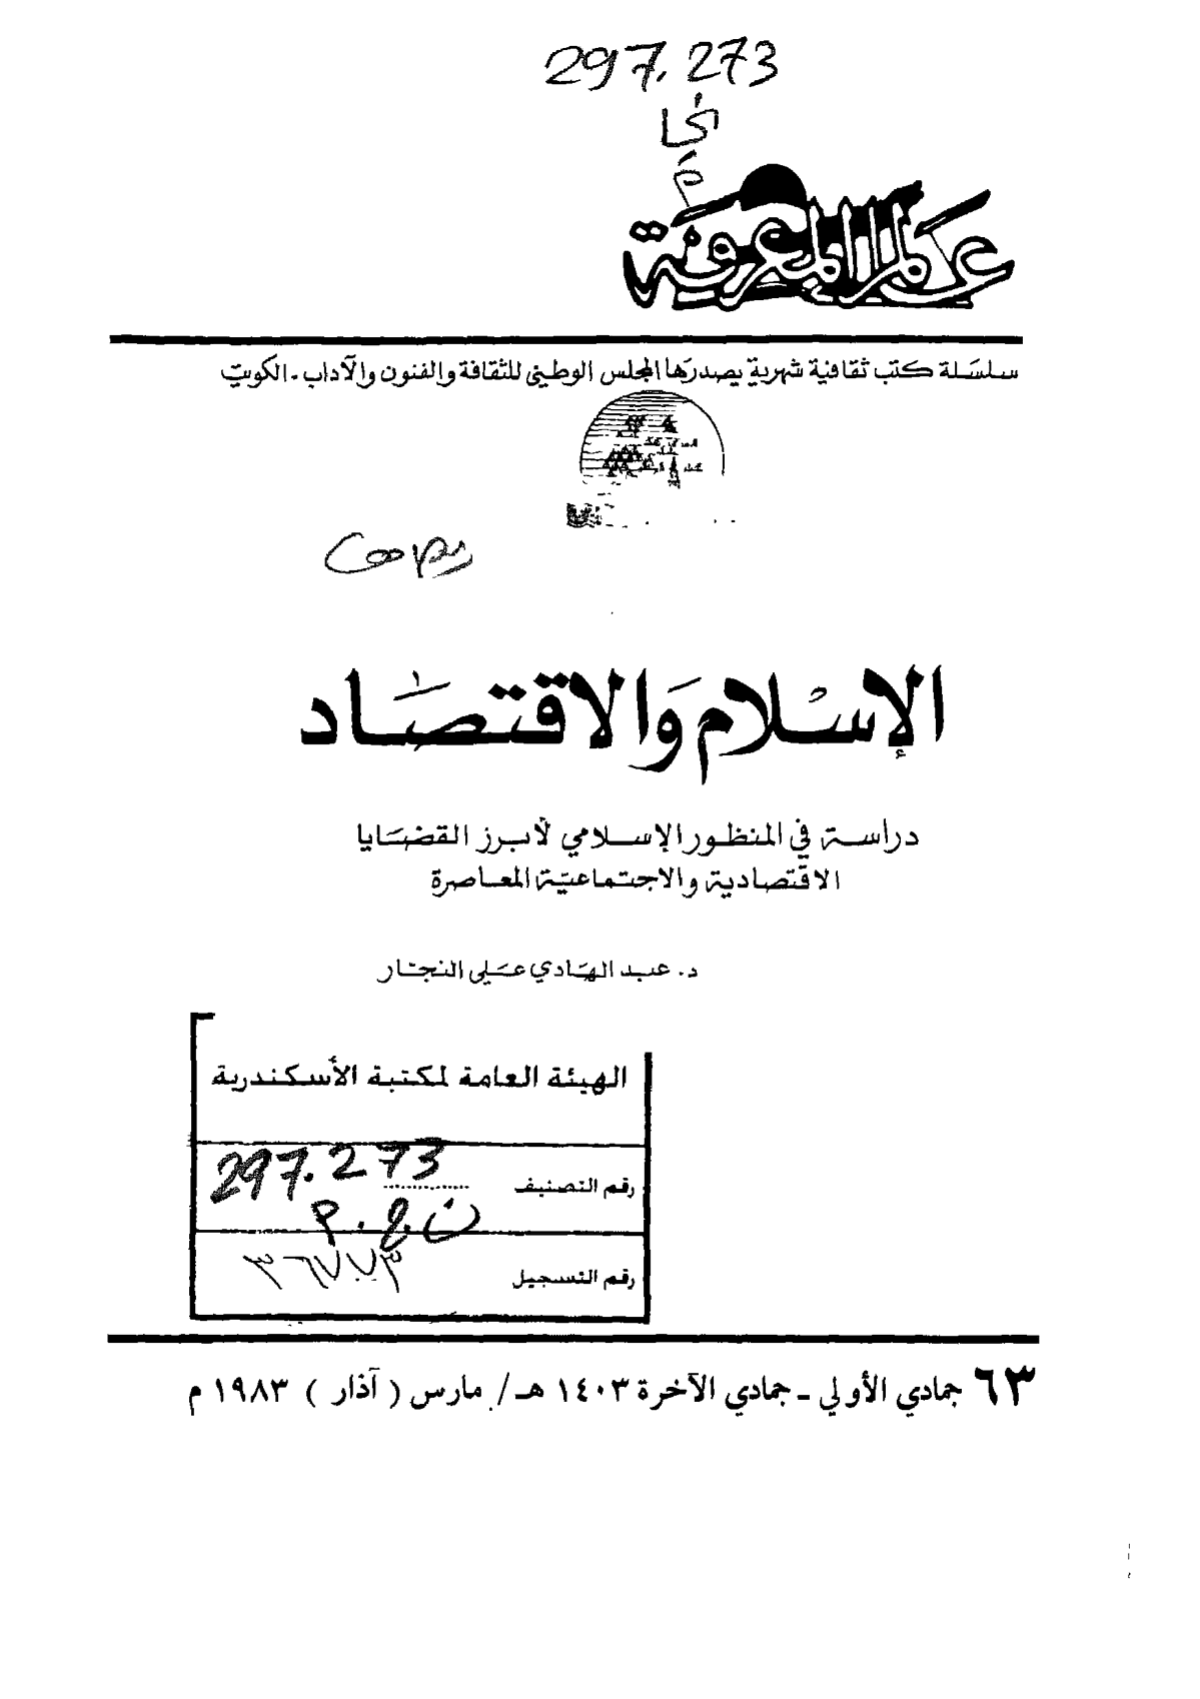 297.273
عالم المعرفة
سلسلة كتب ثقافية شهرية يصدرها المجلس الوطني للثقافة والفنون والآداب - الكويت
الإسلام والاقتصاد
دراسة في المنظور الإسلامي لأبرز القضايا
الاقتصادية والاجتماعية المعاصرة
د. عبد الهادي علي النجار
الهيئة العامة لمكتبة الأسكندرية
رقم التصنيف 297.273
ن.ع.م
رقم التسجيل ٣٦٧٧٣
٦٣ جمادي الأولي - جمادي الآخرة ١٤٠٣ هـ / مارس ( آذار ) ١٩٨٣ م